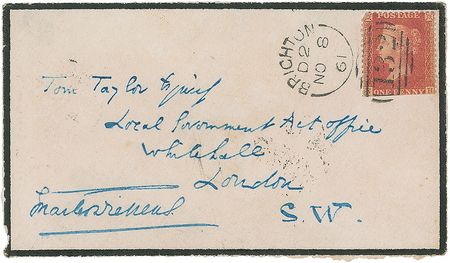 BRIGHTON
D2
NO 8
61
POSTAGE
132
ONE PENNY
Tom Taylor Esquire
Local Government Act office
Whitehall
London
S.W.
Charles Dickens